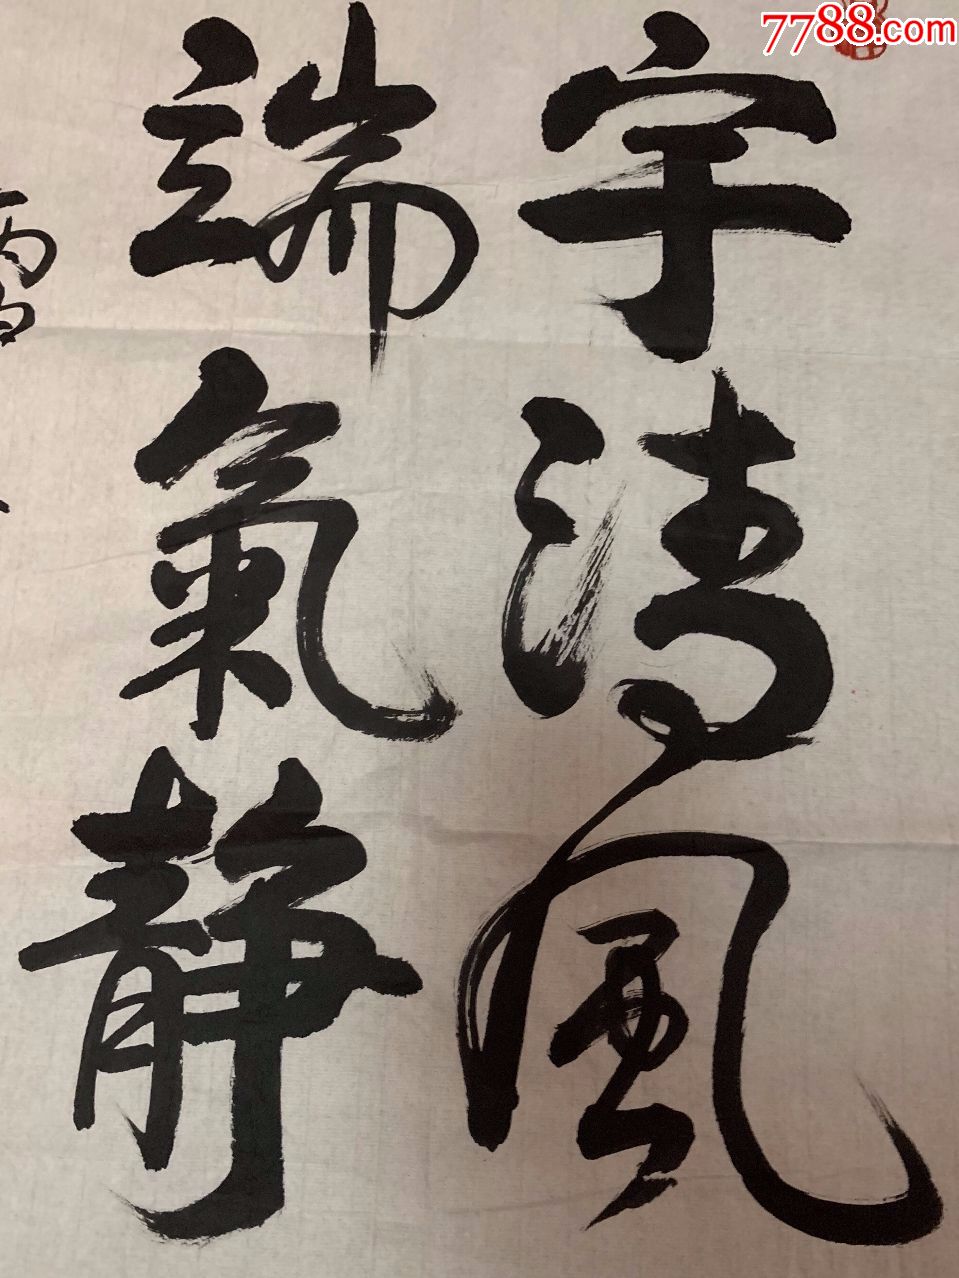 7788.com
宇清風
端氣靜
丙申